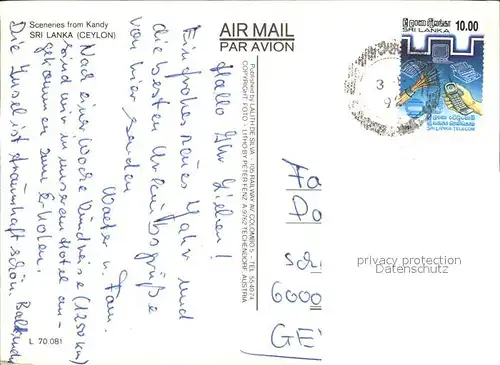 Sceneries from Kandy
SRI LANKA (CEYLON)
AIR MAIL
PAR AVION
ශ්‍රී ලංකා இலங்கை
SRI LANKA
10.00
SRI LANKA TELECOM
3
9
Hallo Ihr Lieben!
Ein frohes neues Jahr und
die besten Urlaubsgrüße
von hier senden
Walter u. Fam.
Nach einer Woche Rundreise (1250 km)
sind wir in unserem Hotel an-
gekommen zum Erholen.
Die Insel ist traumhaft schön.
PUBLISHER: LALITH DE SILVA 105 RAILWAY AV. COLOMBO 5 TEL. 55-40 74
COPYRIGHT: FOTO - LITHO BY PETER FENZ, A-9762 TECHENDORF, AUSTRIA
Fa
6000
GE
privacy protection
Datenschutz
L 70.081